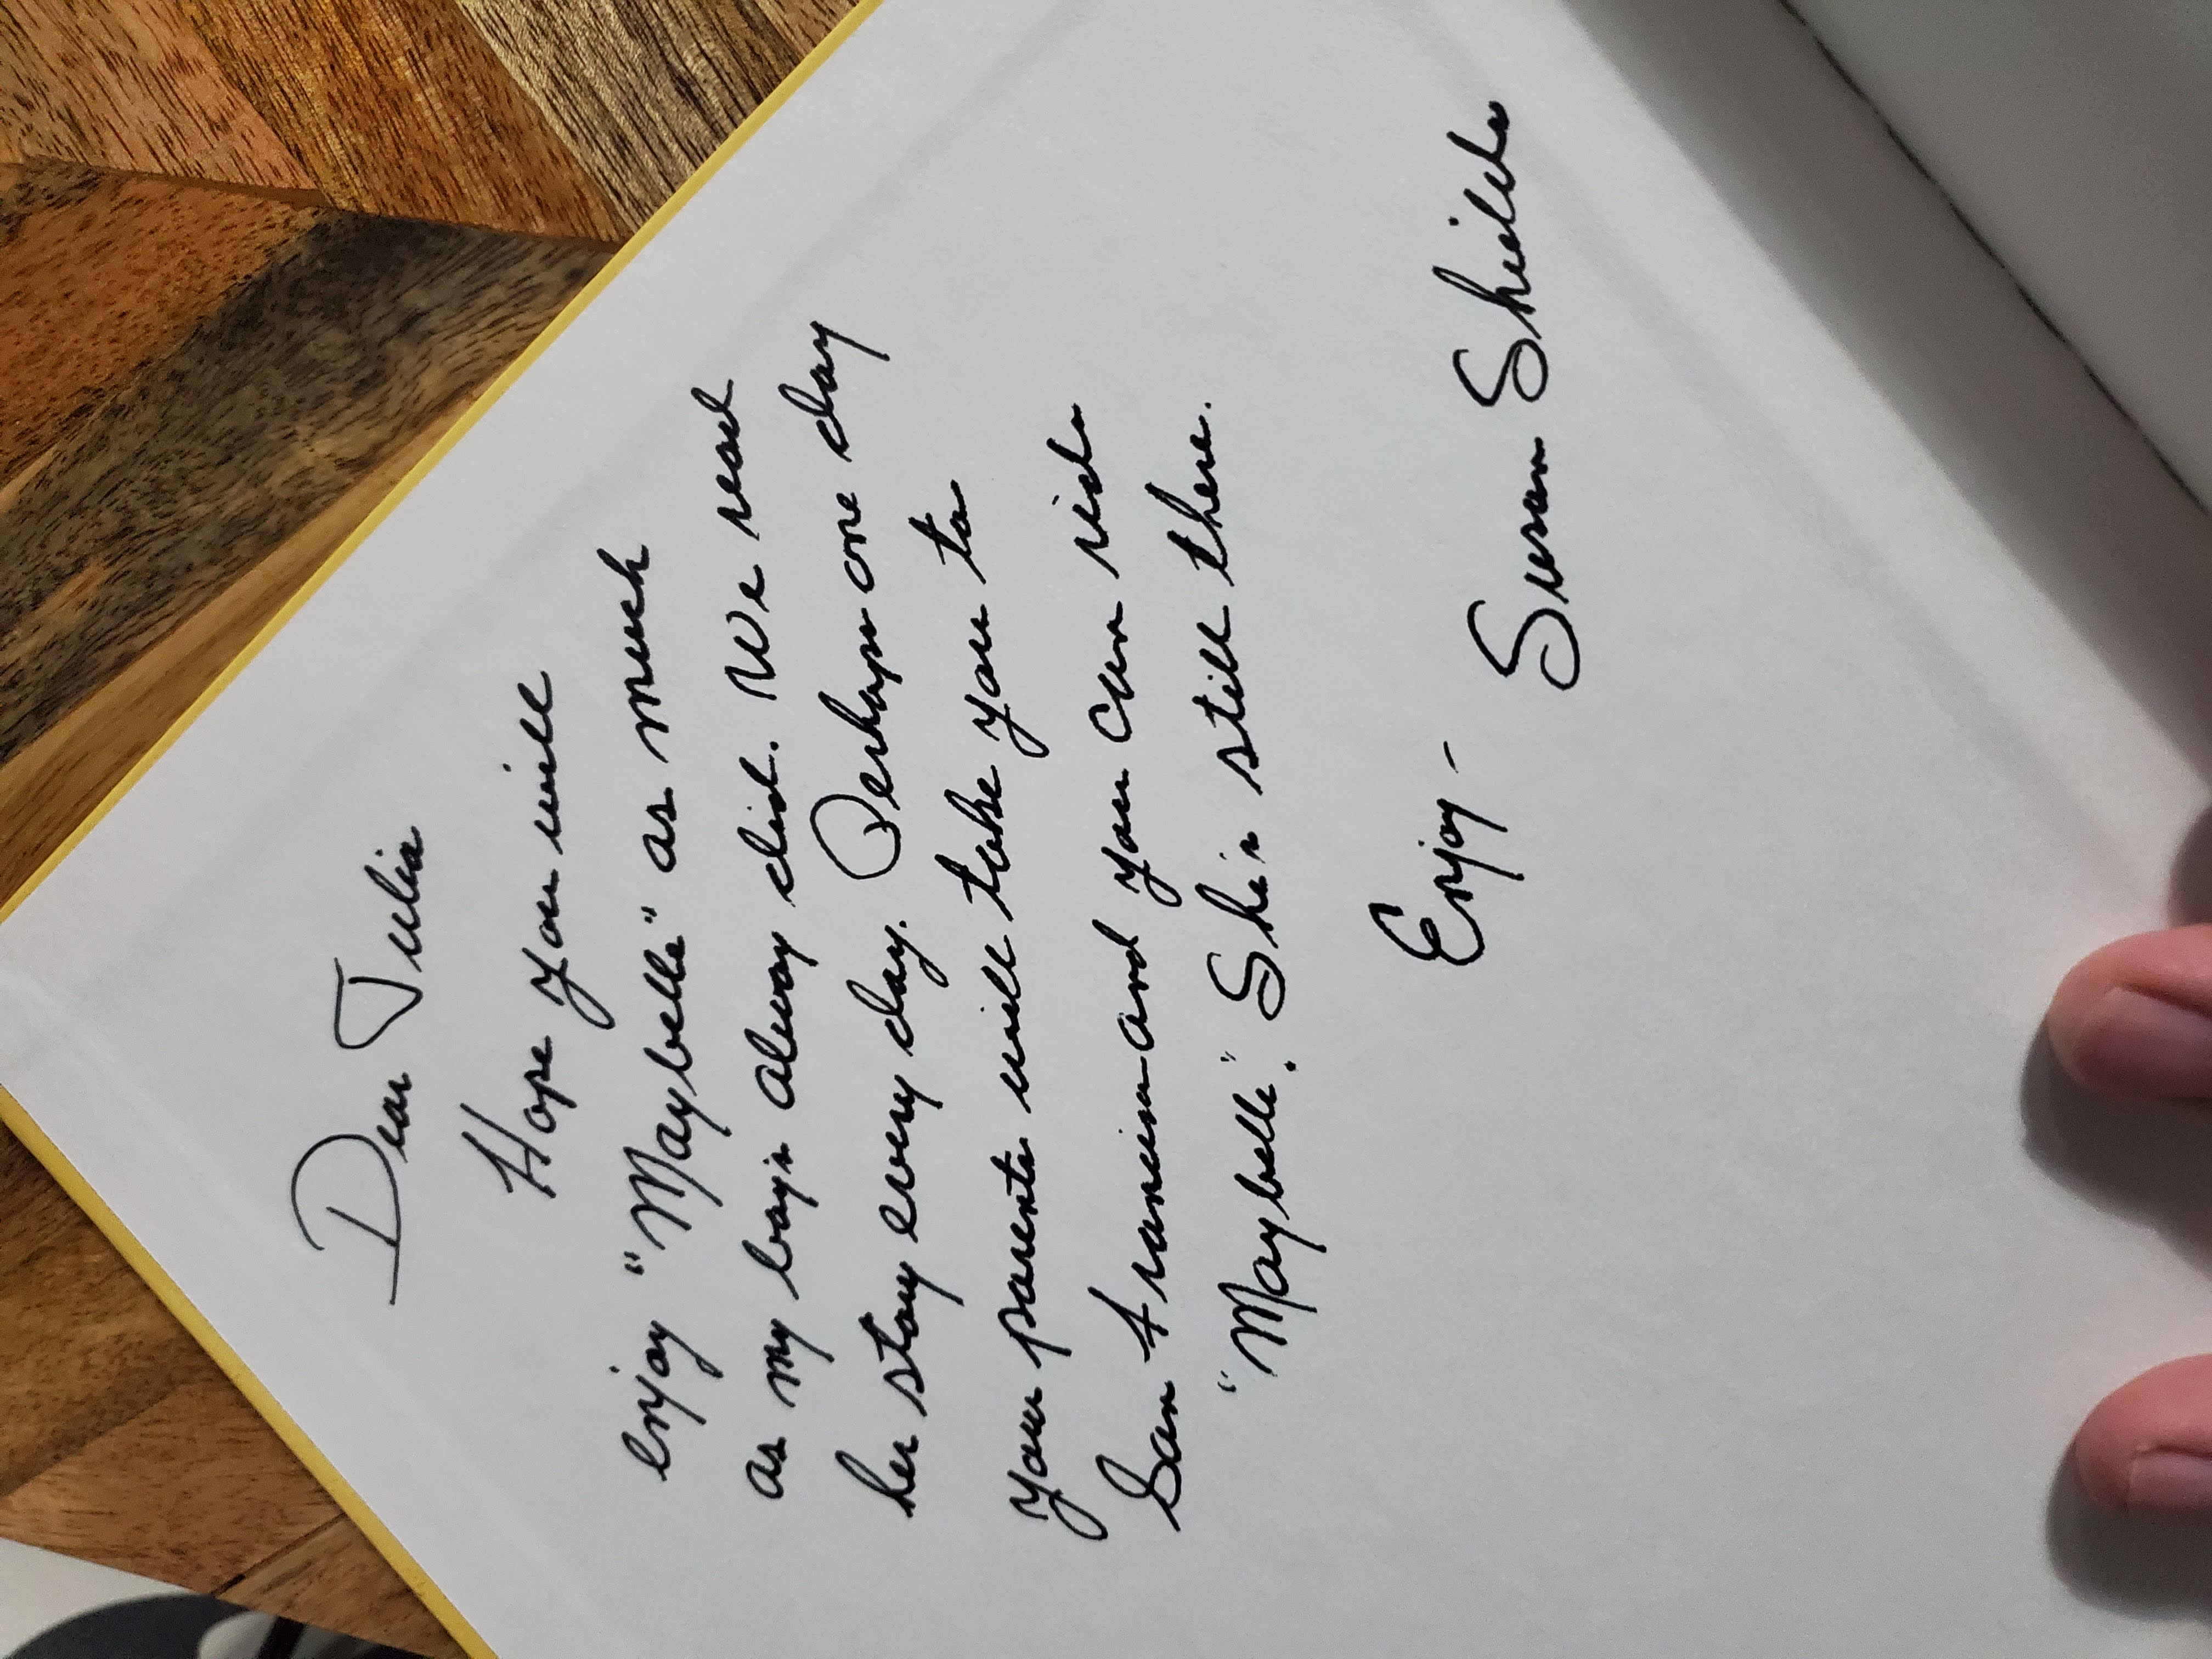 Dear Julia
Hope you will
enjoy "Maybelle" as much
as my boys always did. We read
her story every day. Perhaps one day
your parents will take you to
San Francisco and you can ride
"Maybelle." She's still there.
Enjoy -
Susan Shields